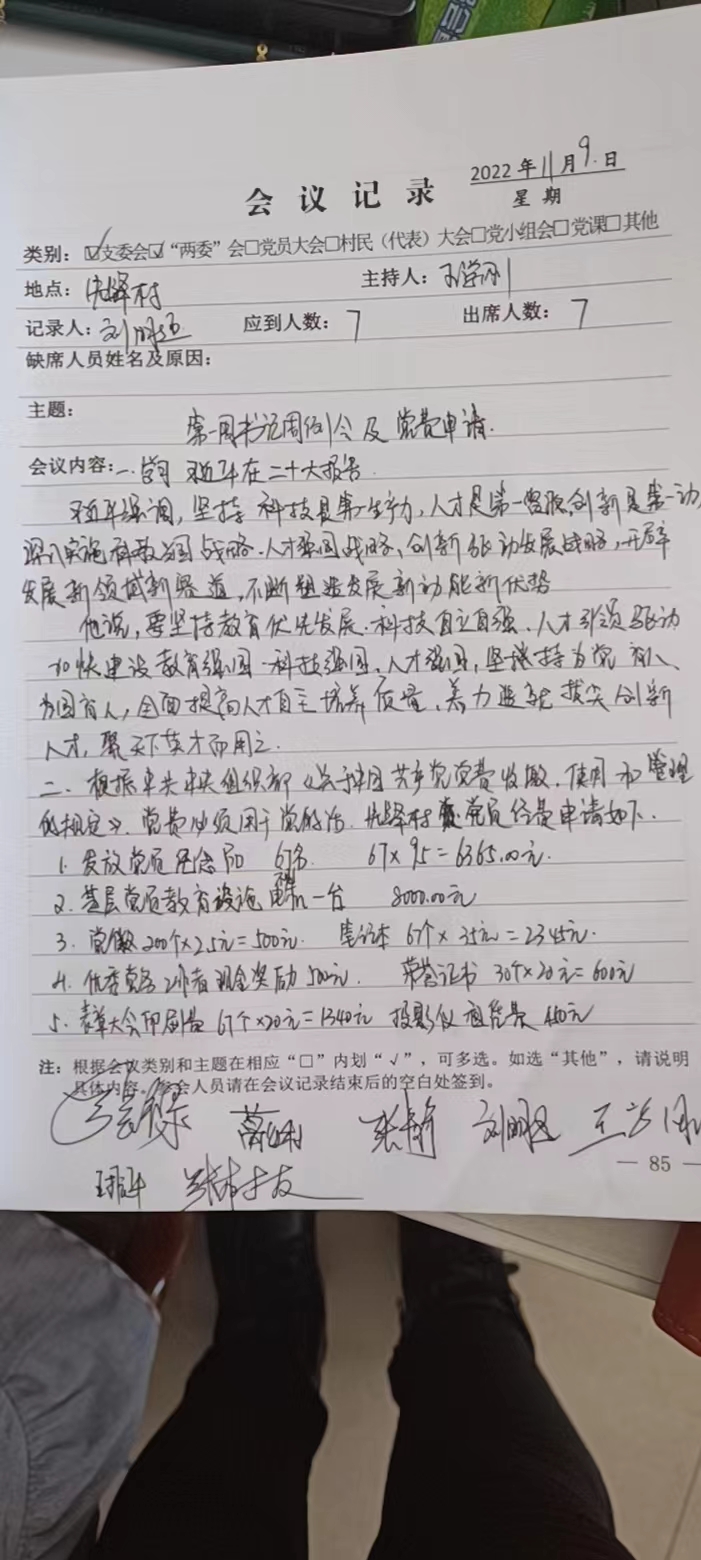 会议记录
2022年11月9日
星期
类别：☑支委会☑“两委”会□党员大会□村民（代表）大会□党小组会□党课□其他
地点：先锋村 主持人：
记录人：刘明 应到人数：7 出席人数：7
缺席人员姓名及原因：
主题：
第一周书记周例会及党费申请.
会议内容：一.学习 在二十大报告
强调，坚持科技是第一生产力，人才是第一资源，创新是第一动
深入实施科教兴国战略.人才强国战略、创新驱动发展战略，开辟
发展新领域新赛道，不断塑造发展新动能新优势
他说，要坚持教育优先发展.科技自立自强、人才引领驱动
加快建设教育强国.科技强国.人才强国，坚持为党育人、
为国育人，全面提高人才自主培养质量、着力造就拔尖创新
人才，聚天下英才而用之.
二、根据中共中央组织部《关于中国共产党党费收缴、使用和管理
的规定》.党费必须用于党的活.先锋村党员经费申请如下.
1.发放党员 67名 67×95=6365.00元.
2.基层党员教育设施电视机一台 8000.00元
3.党徽200个×2.5元=500元. 笔记本 67个×35元=2345元.
4.优秀党务工作者现金奖励500元. 荣誉证书 30个×20元=600元
5.表彰大会印刷品 67个×20元=1340元 投影仪租凭费 元
注：根据会议类别和主题在相应“□”内划“√”，可多选。如选“其他”，请说明
具体内容。参会人员请在会议记录结束后的空白处签到。
张静 刘明
— 85 —